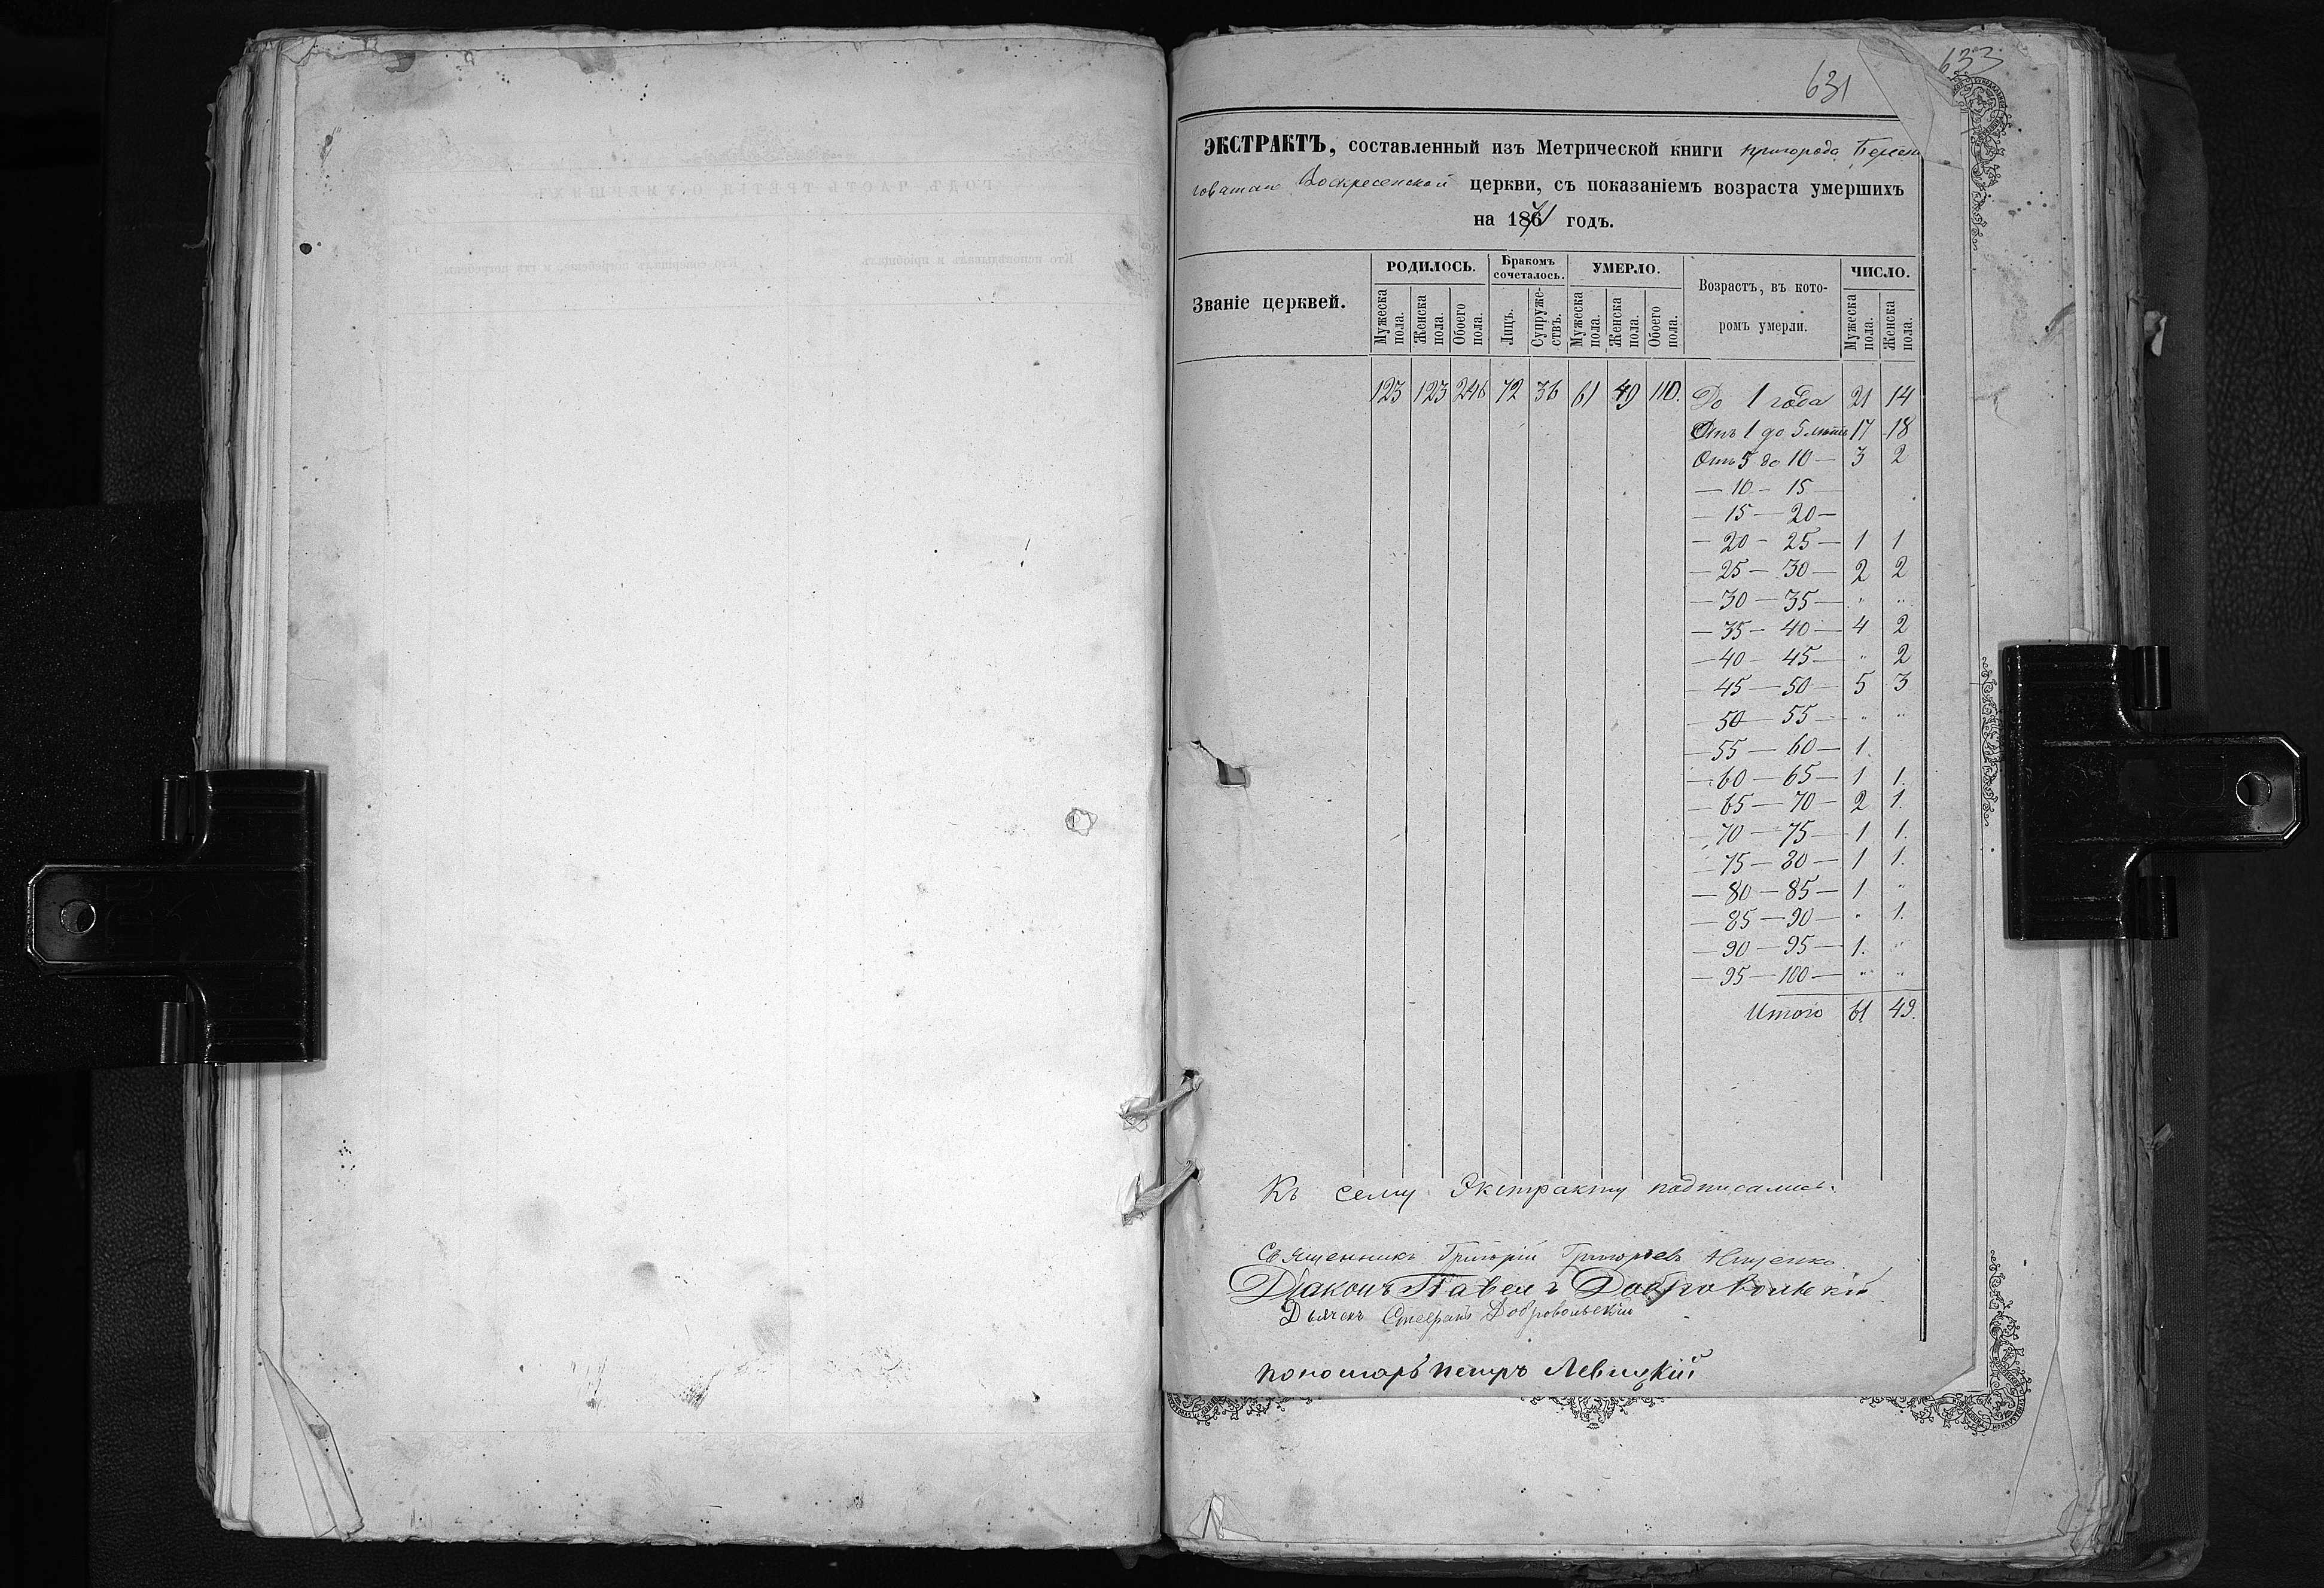 633
631
ЭКСТРАКТЪ, составленный изъ Метрической книги пригорода Березне
говатаго Воскресенской церкви, съ показаніемъ возраста умершихъ
на 1871 годъ.
Званіе церквей. РОДИЛОСЬ. Бракомъ сочеталось. УМЕРЛО. Возрастъ, въ кото- ромъ умерли. ЧИСЛО.
Мужеска пола. Женска пола. Обоего пола. Лицъ. Супруже- ствъ. Мужеска пола. Женска пола. Обоего пола. Мужеска пола. Женска пола.
123 123 246 72 36 61 49 110. До 1 года 21 14
Отъ 1 до 5 лѣтъ 17 18
Отъ 5 до 10 — 3 2
— 10 — 15 —
— 15 — 20 —
— 20 — 25 — 1 1
— 25 — 30 — 2 2
— 30 — 35 — " "
— 35 — 40 — 4 2
— 40 — 45 — " 2
— 45 — 50 — 5 3
— 50 — 55 — " "
— 55 — 60 — 1.
— 60 — 65 — 1 1.
— 65 — 70 — 2 1.
— 70 — 75 — 1 1.
— 75 — 80 — 1 1.
— 80 — 85 — 1 "
— 85 — 90 — " 1.
— 90 — 95 — 1. "
— 95 — 100 — " "
Итого 61 49.
Къ сему Экстракту подписались:
Священникъ Григорій Григорьевъ
Діаконъ Павелъ Добровольскій
Дьячекъ Добровольскій
пономарь петръ Левицкій